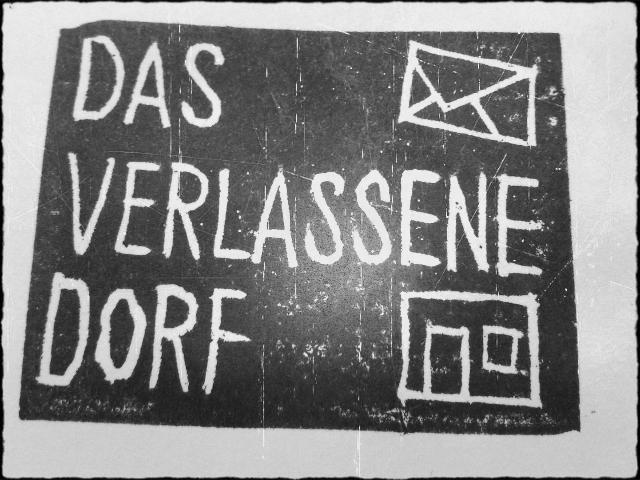 DAS
VERLASSENE
DORF